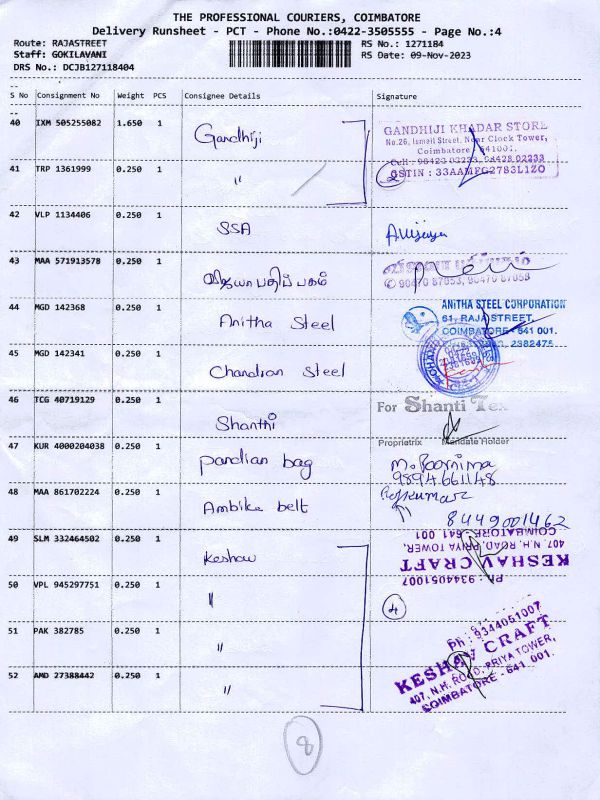 THE PROFESSIONAL COURIERS, COIMBATORE
Delivery Runsheet - PCT - Phone No.:0422-3505555 - Page No.:4
Route: RAJASTREET
RS No.: 1271184
Staff: GOKILAVANI
RS Date: 09-Nov-2023
DRS No.: DCJB127118404
S No Consignment No Weight PCS Consignee Details Signature
40 IXM 505255082 1.650 1 Gandhiji
GANDHIJI KHADAR STORE
No.26, Ismail Street, Near Clock Tower,
Coimbatore - 641001.
Cell : 98422 02233, 94428 02233
GSTIN : 33AAMFG2783L1ZO
41 TRP 1361999 0.250 1 "
2
42 VLP 1134406 0.250 1 SSA
43 MAA 571913578 0.250 1 விஜயா பதிப்பகம்
விஜயா பதிப்பகம்
90470 87053, 90470 87058
44 MGD 142368 0.250 1 Anitha Steel
ANITHA STEEL CORPORATION
61, RAJA STREET,
COIMBATORE - 641 001.
2382475
45 MGD 142341 0.250 1 Chandran Steel
46 TCG 40719129 0.250 1 Shanthi
For Shanti Tex
Proprietrix Mandate Holder
47 KUR 4000204038 0.250 1 pandian bag
M. Poornima
9894661148
48 MAA 861702224 0.250 1 Ambika belt
Rajkumar
8449001462
49 SLM 332464502 0.250 1 Keshav
KESHAV CRAFT
407, N.H. ROAD, PRIYA TOWER,
COIMBATORE - 641 001
Ph : 9344051007
50 VPL 945297751 0.250 1 "
4
51 PAK 382785 0.250 1 "
Ph : 9344051007
KESHAV CRAFT
407, N.H. ROAD, PRIYA TOWER,
COIMBATORE - 641 001.
52 AMD 27388442 0.250 1 "
8